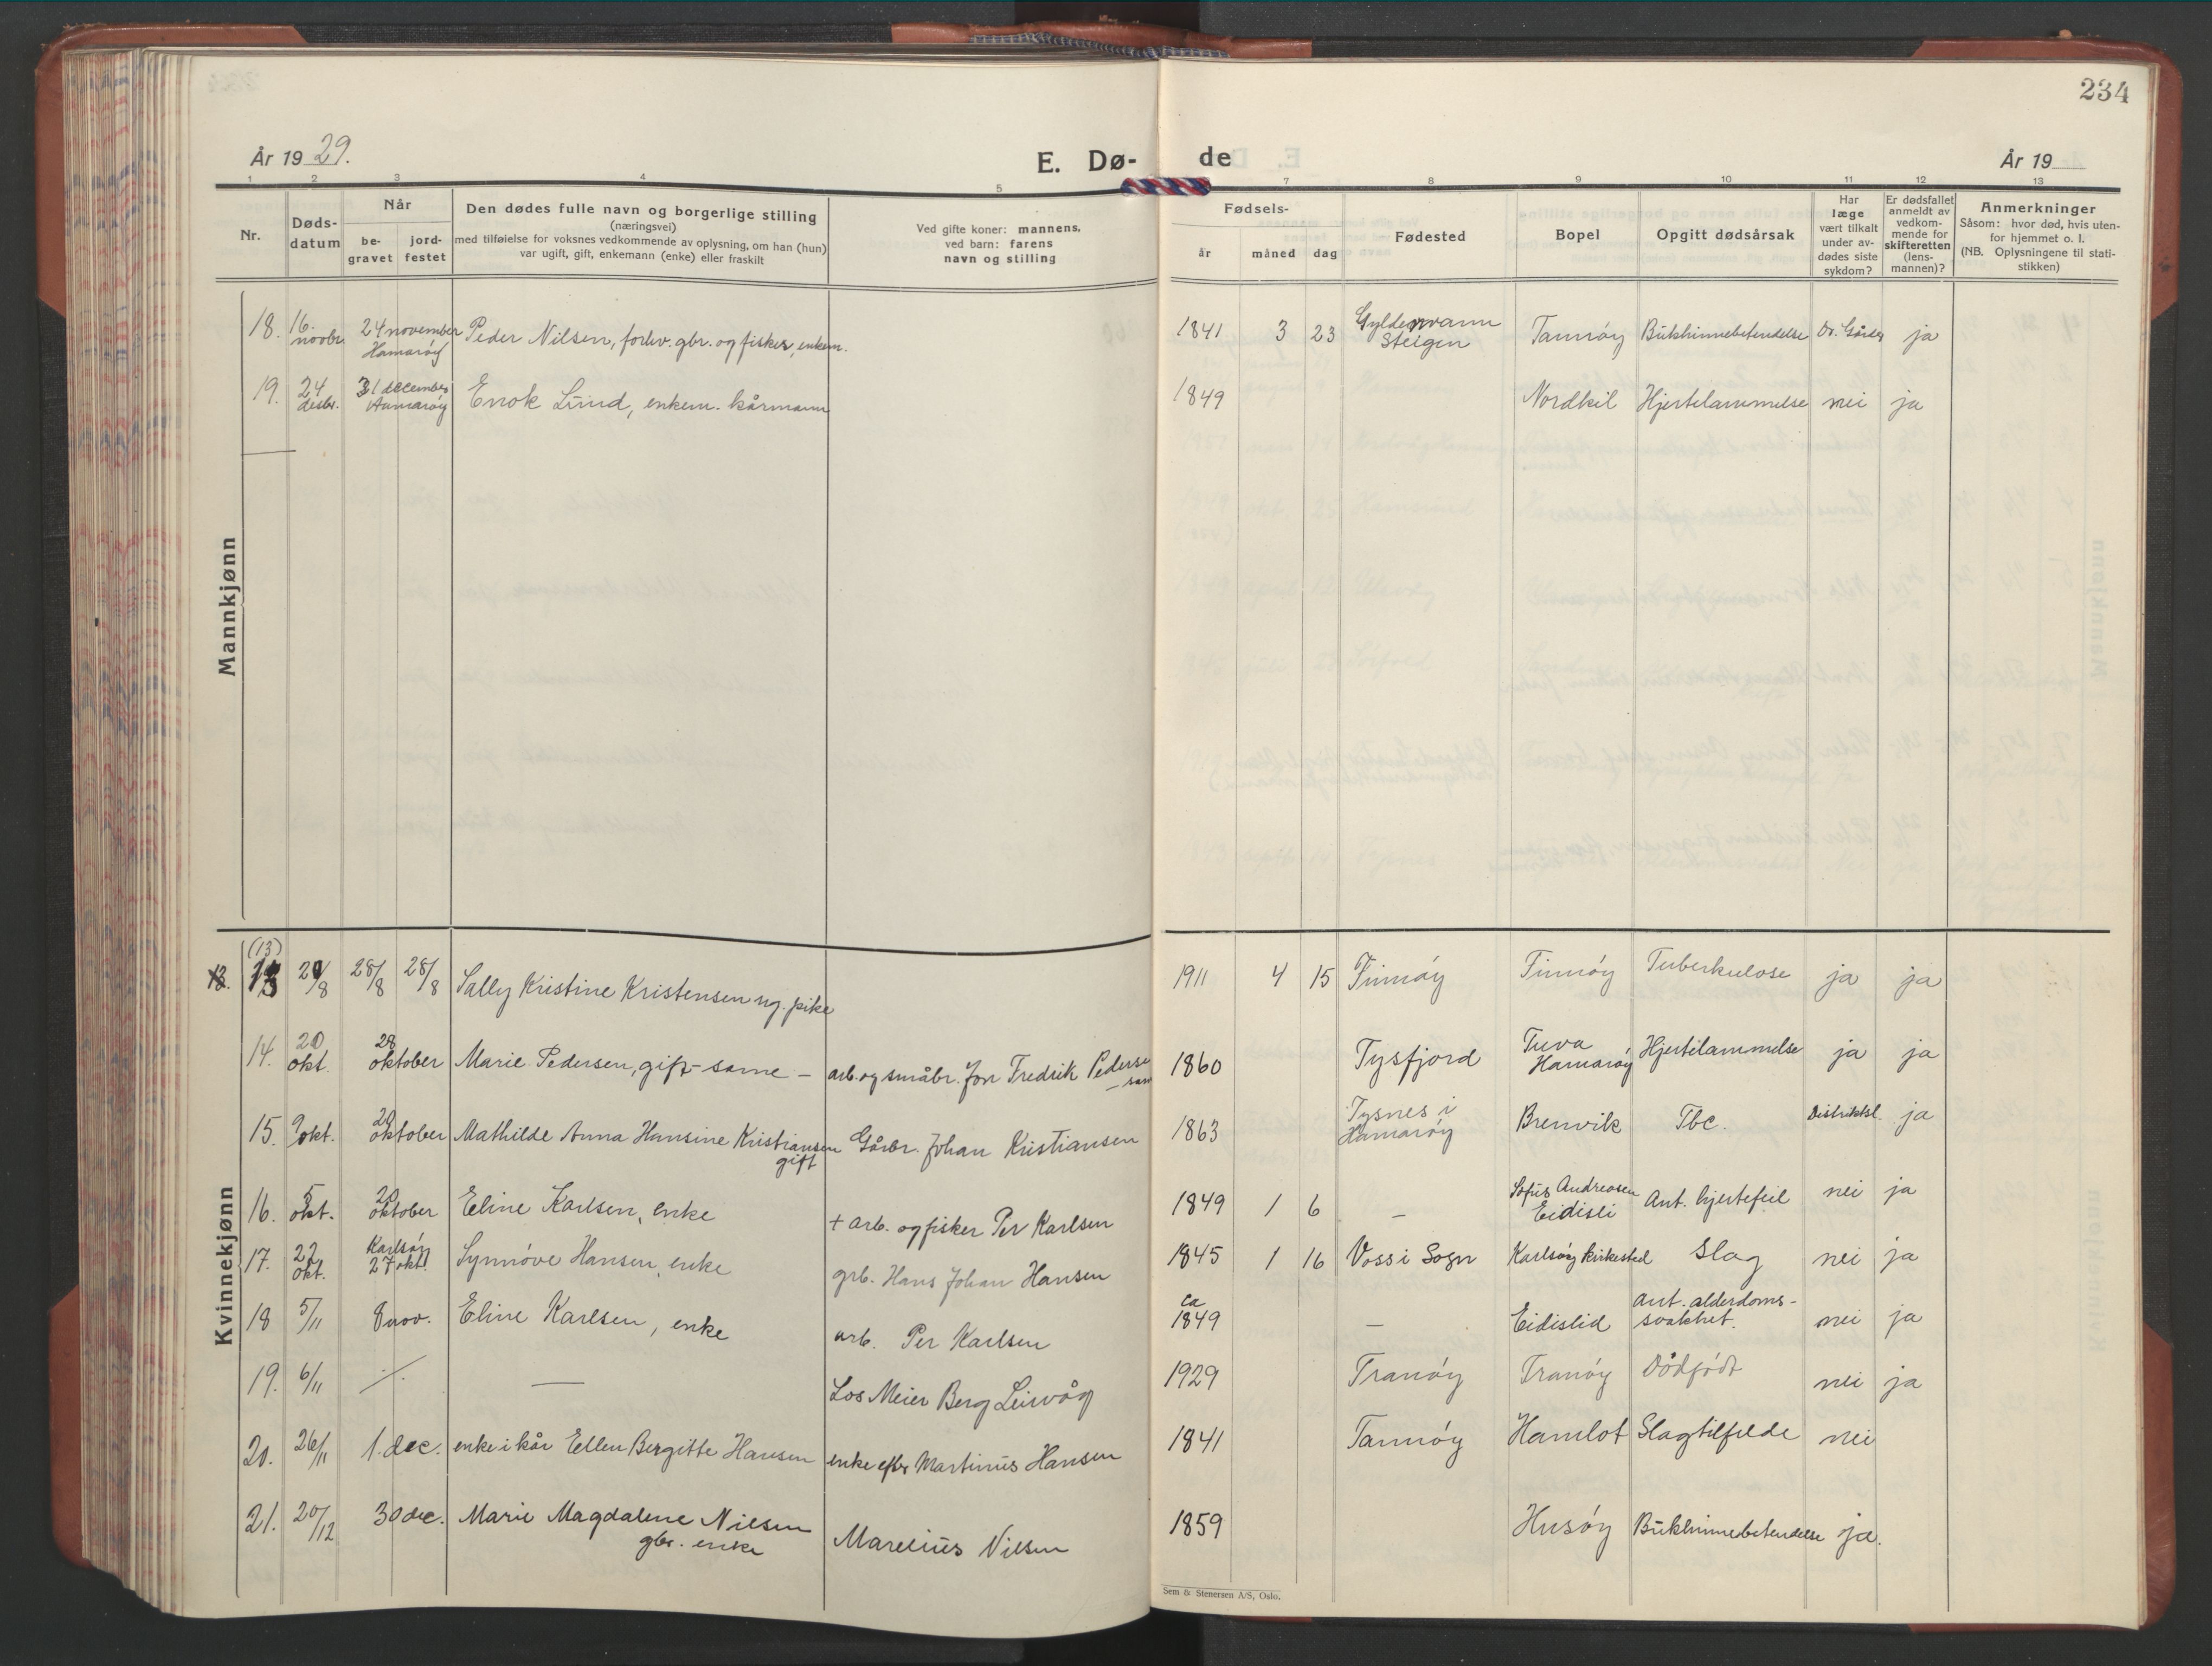 234
År 1929.
E. Dø- de
År 19
1 2 3 4 5 7 8 9 10 11 12 13
Nr.
Døds-
datum
Når
be-
gravet
jord-
festet
Den dødes fulle navn og borgerlige stilling
(næringsvei)
med tilføielse for voksnes vedkommende av oplysning, om han (hun)
var ugift, gift, enkemann (enke) eller fraskilt
Ved gifte koner: mannens,
ved barn: farens
navn og stilling
Fødsels-
år måned dag
Fødested
Bopel
Opgitt dødsårsak
Har
læge
vært tilkalt
under av-
dødes siste
sykdom?
Er dødsfallet
anmeldt av
vedkom-
mende for
skifteretten
(lens-
mannen)?
Anmerkninger
Såsom: hvor død, hvis uten-
for hjemmet o. l.
(NB. Oplysningene til stati-
stikken)
Mannkjønn
18. 16. novbr. 24 november Hamarøy Peder Nilsen, forhv. gbr. og fisker, enkem. 1841 3 23 Gyldenvann Steigen Tannøy Bukhinnebetendelse Dr. ja
19. 24 desbr. 31 december Hamarøy Enok Lund, enkem. kårmann 1849 Nordkil Hjertelammelse nei ja
Kvinnekjønn
(13)
13. 2/8 28/8 28/8 Sally Kristine Kristensen ug. pike 1911 4 15 Finnøy Finnøy Tuberkulose ja ja
14. 20 okt. 28 oktober Marie Pedersen, gift - same - arb. og småbr. Jon Fredrik Pederse 1860 Tysfjord Tuva Hamarøy Hjertelammelse ja ja
15. 9 okt. 20 oktober Mathilde Anna Hansine Kristiansen gift Gårbr. Johan Kristiansen 1863 Tysnes i Hamarøy Brenvik Tbc. Distriktsl. ja
16. 5 okt. 20 oktober Eline Karlsen, enke + arb. og fisker Per Karlsen 1849 1 6 — Sofus Andreasen Eidisli Ant. hjertefeil nei ja
17. 22 okt. Karlsøy 27 okt. Synnøve Hansen, enke grb. Hans Johan Hansen 1845 1 16 Voss i Sogn Karlsøy kirkested Slag nei ja
18 5/11 8 nov. Eline Karlsen, enke arb. Per Karlsen ca 1849 — Eidislid ant. alderdoms- svakhet. nei ja
19. 6/11 ./. — Los Meier Berg Leirvåg 1929 Tranøy Tranøy Dødfødt nei ja
20. 26/11 1. dec. enke i kår Ellen Bergitte Hansen enke efter Martinus Hansen 1841 Tannøy Hamlot Slagtilfelde nei
21. 20/12 30 dec. Marie Magdalene Nilsen gbr. enke Marelius Nilsen 1859 Husøy Bukhinnebetendelse ja.
Sem & Stenersen A/S, Oslo.